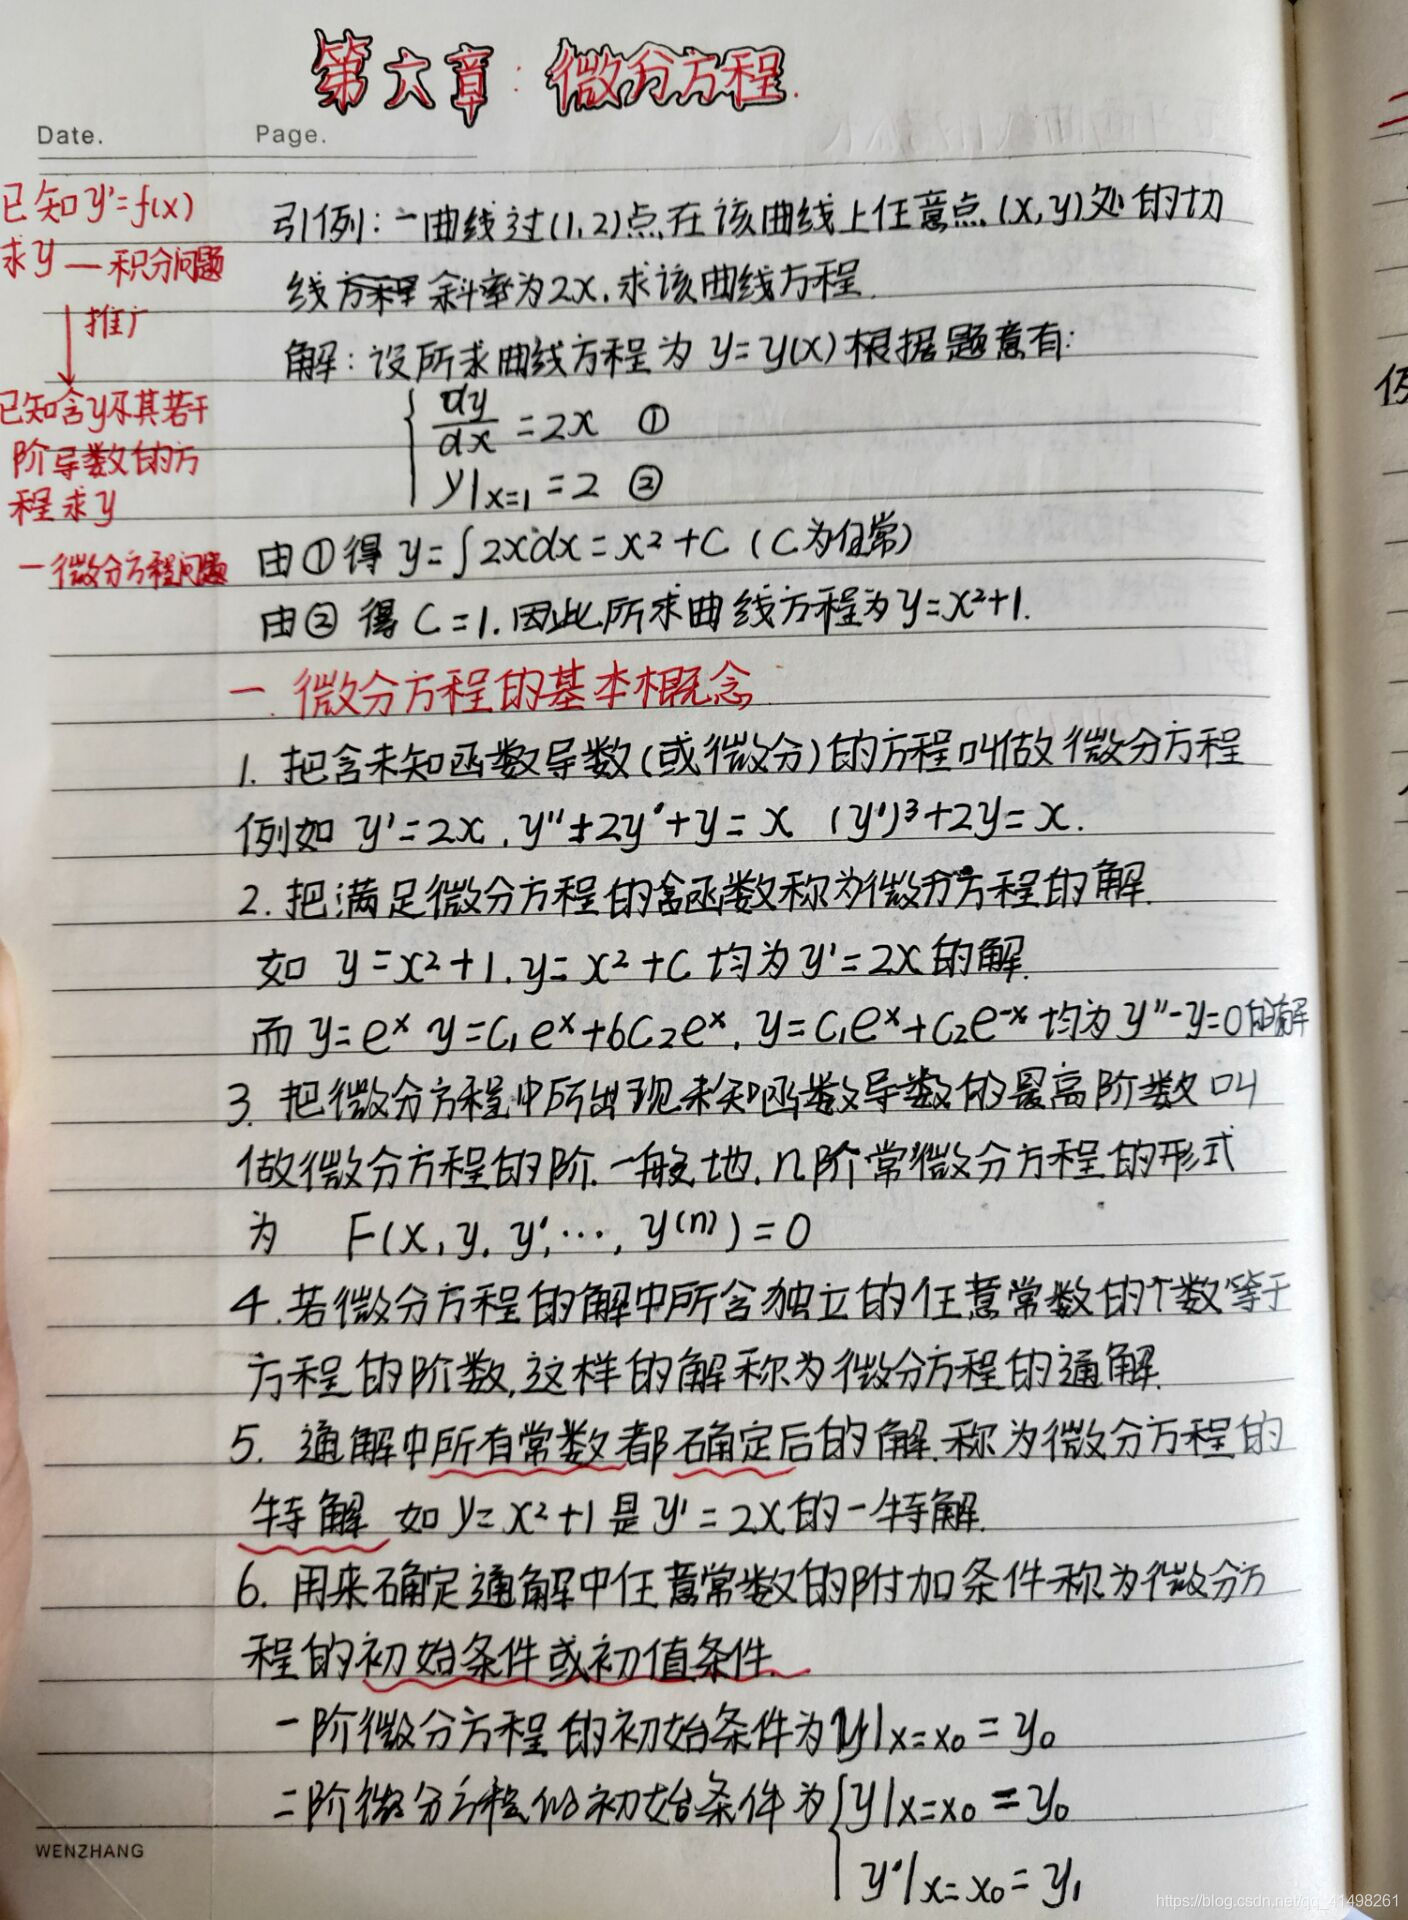 第六章:微分方程.
Date. Page.
已知y'=f(x)
求y—积分问题
推广
已知含y及其若干
阶导数的方
程求y
—微分方程问题
引例:一曲线过(1,2)点在该曲线上任意点(x,y)处的切
线方程斜率为2x.求该曲线方程.
解:设所求曲线方程为y=y(x)根据题意有:
dy/dx=2x ①
y|x=1=2 ②
由①得y=∫2xdx=x²+C(C为任常)
由②得C=1.因此所求曲线方程为y=x²+1.
一.微分方程的基本概念
1.把含未知函数导数(或微分)的方程叫做微分方程
例如 y'=2x.y''+2y'+y=x (y')³+2y=x.
2.把满足微分方程的函数称为微分方程的解.
如 y=x²+1.y=x²+C均为y'=2x的解.
而y=eˣ y=C₁eˣ+6C₂eˣ.y=C₁eˣ+C₂e⁻ˣ均为y''-y=0的解
3.把微分方程中所出现未知函数导数的最高阶数叫
做微分方程的阶.一般地.n阶常微分方程的形式
为 F(x,y,y',…,y⁽ⁿ⁾)=0
4.若微分方程的解中所含独立的任意常数的个数等于
方程的阶数,这样的解称为微分方程的通解.
5.通解中所有常数都确定后的解.称为微分方程的
特解 如y=x²+1是y'=2x的一特解.
6.用来确定通解中任意常数的附加条件称为微分方
程的初始条件或初值条件.
一阶微分方程的初始条件为y|x=x₀=y₀
二阶微分方程的初始条件为{y|x=x₀=y₀
y'|x=x₀=y₁
WENZHANG
二
https://blog.csdn.net/qq_41498261